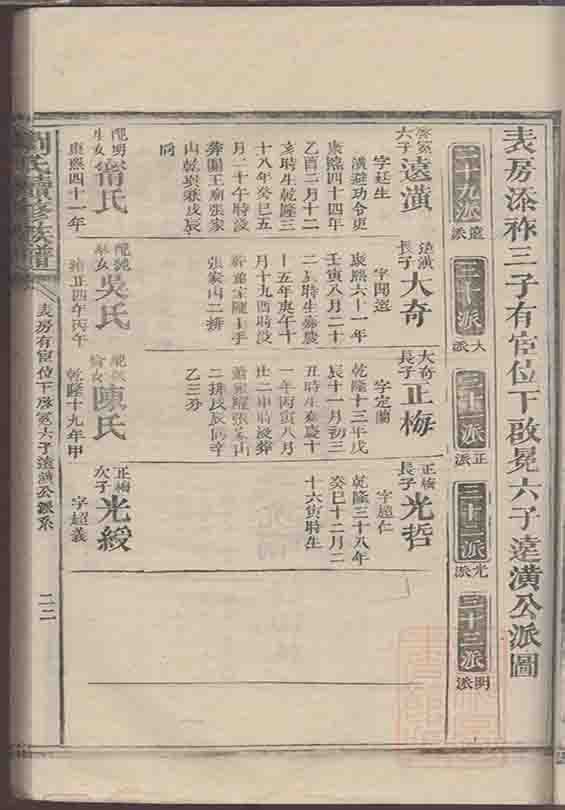 表房添祚三子有宦位下啟冕六子遠潢公派圖
二十九派 遠派
三十派 大派
三十一派 正派
三十二派 光派
三十三派 明派
六子 遠潢
字廷生
潢避功令更
康熙四十四年
乙酉二月十二
亥時生乾隆三
十八年癸巳五
月二十午時歿
葬關王廟張家
山乾巽兼戌辰
向
氏
康熙四十一年
遠潢長子 大奇
字聞選
康熙六十一年
壬寅八月二十
二 時生嘉慶
十五年庚午十
月十九酉時歿
張家山二排
吳氏
雍正四年丙午
大奇長子 正梅
字定蘭
乾隆十三年戊
辰十一月初三
丑時生嘉慶十
一年丙寅八月
廿二申時歿葬
張家山
乙三分
陳氏
乾隆十九年甲
正梅長子 光哲
字超仁
乾隆三十八年
癸巳十二月二
十六寅時生
正梅次子 光綬
字超義
續修族譜
表房有宦位下啟冕六子遠潢公派系
二二